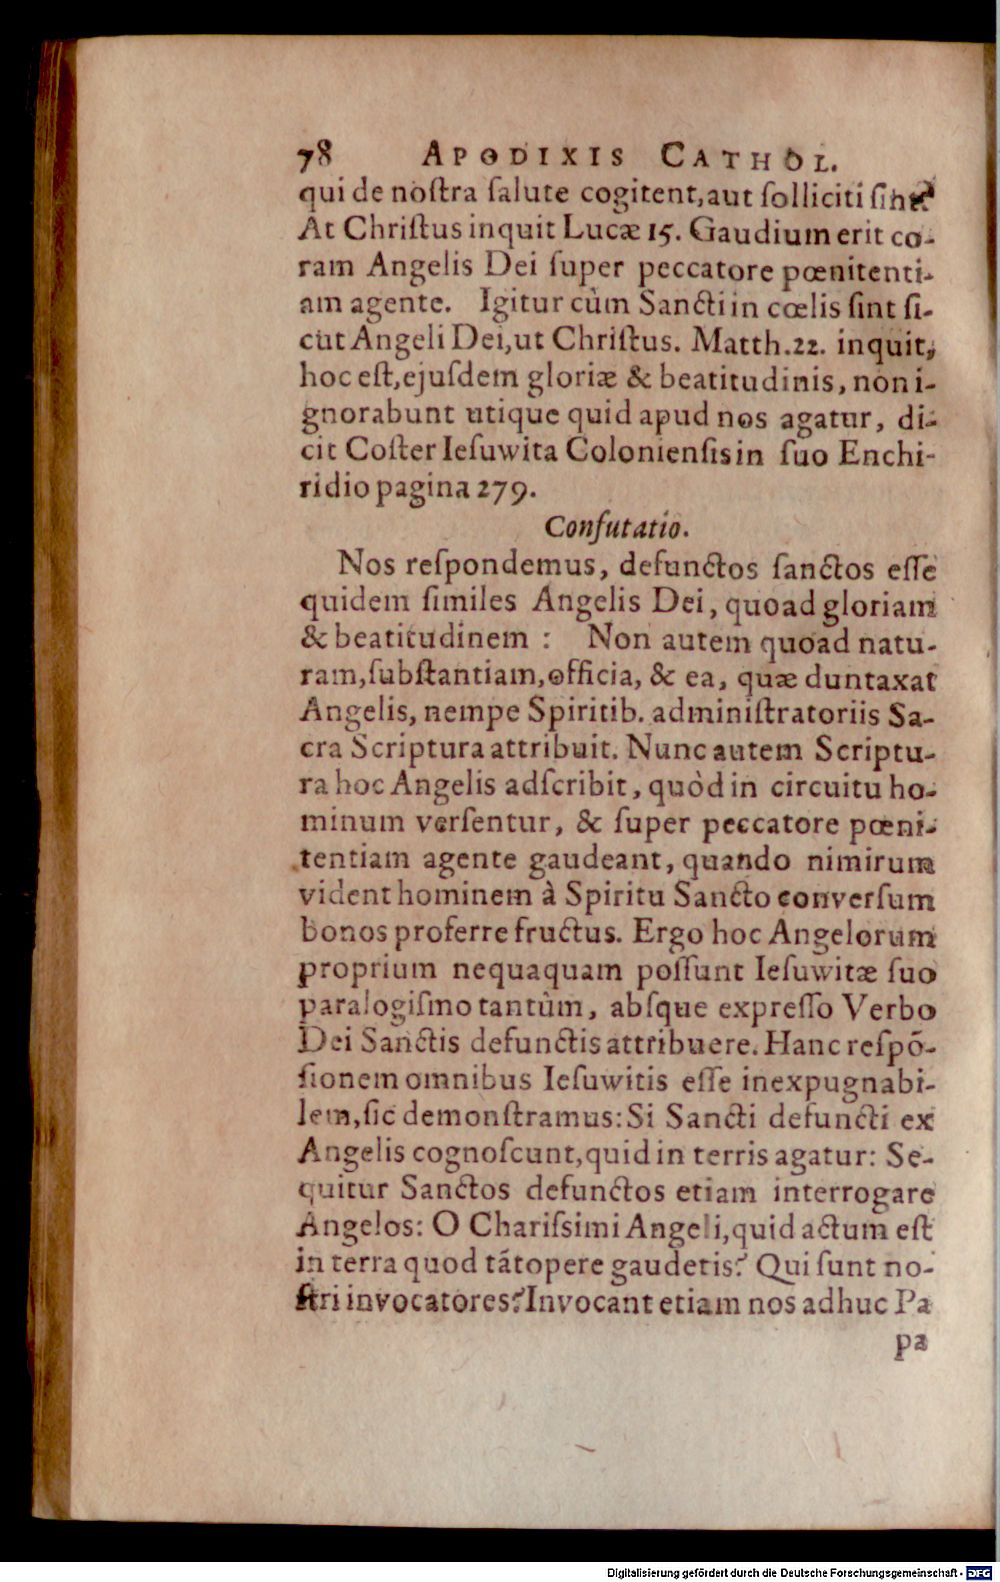 78 APODIXIS CATHOL.
qui de noſtra ſalute cogitent, aut ſolliciti ſint?
At Chriſtus inquit Lucæ 15. Gaudium erit co-
ram Angelis Dei ſuper peccatore pœnitenti-
am agente. Igitur cùm Sancti in cœlis ſint ſi-
cut Angeli Dei, ut Chriſtus. Matth. 22. inquit,
hoc eſt, ejuſdem gloriæ & beatitudinis, non i-
gnorabunt utique quid apud nos agatur, di-
cit Coſter Ieſuwita Colonienſis in ſuo Enchi-
ridio pagina 279.
Confutatio.
Nos reſpondemus, defunctos ſanctos eſſe
quidem ſimiles Angelis Dei, quoad gloriam
& beatitudinem : Non autem quoad natu-
ram, ſubſtantiam, officia, & ea, quæ duntaxat
Angelis, nempe Spiritib. adminiſtratoriis Sa-
cra Scriptura attribuit. Nunc autem Scriptu-
ra hoc Angelis adſcribit, quòd in circuitu ho-
minum verſentur, & ſuper peccatore pœni-
tentiam agente gaudeant, quando nimirum
vident hominem à Spiritu Sancto converſum
bonos proferre fructus. Ergo hoc Angelorum
proprium nequaquam poſſunt Ieſuwitæ ſuo
paralogiſmo tantùm, abſque expreſſo Verbo
Dei Sanctis defunctis attribuere. Hanc reſpõ-
ſionem omnibus Ieſuwitis eſſe inexpugnabi-
lem, ſic demonſtramus: Si Sancti defuncti ex
Angelis cognoſcunt, quid in terris agatur: Se-
quitur Sanctos defunctos etiam interrogare
Angelos: O Chariſsimi Angeli, quid actum eſt
in terra quod tãtopere gaudetis? Qui ſunt no-
ſtri invocatores? Invocant etiam nos adhuc Pa
pa
Digitalisierung gefördert durch die Deutsche Forschungsgemeinschaft - DFG